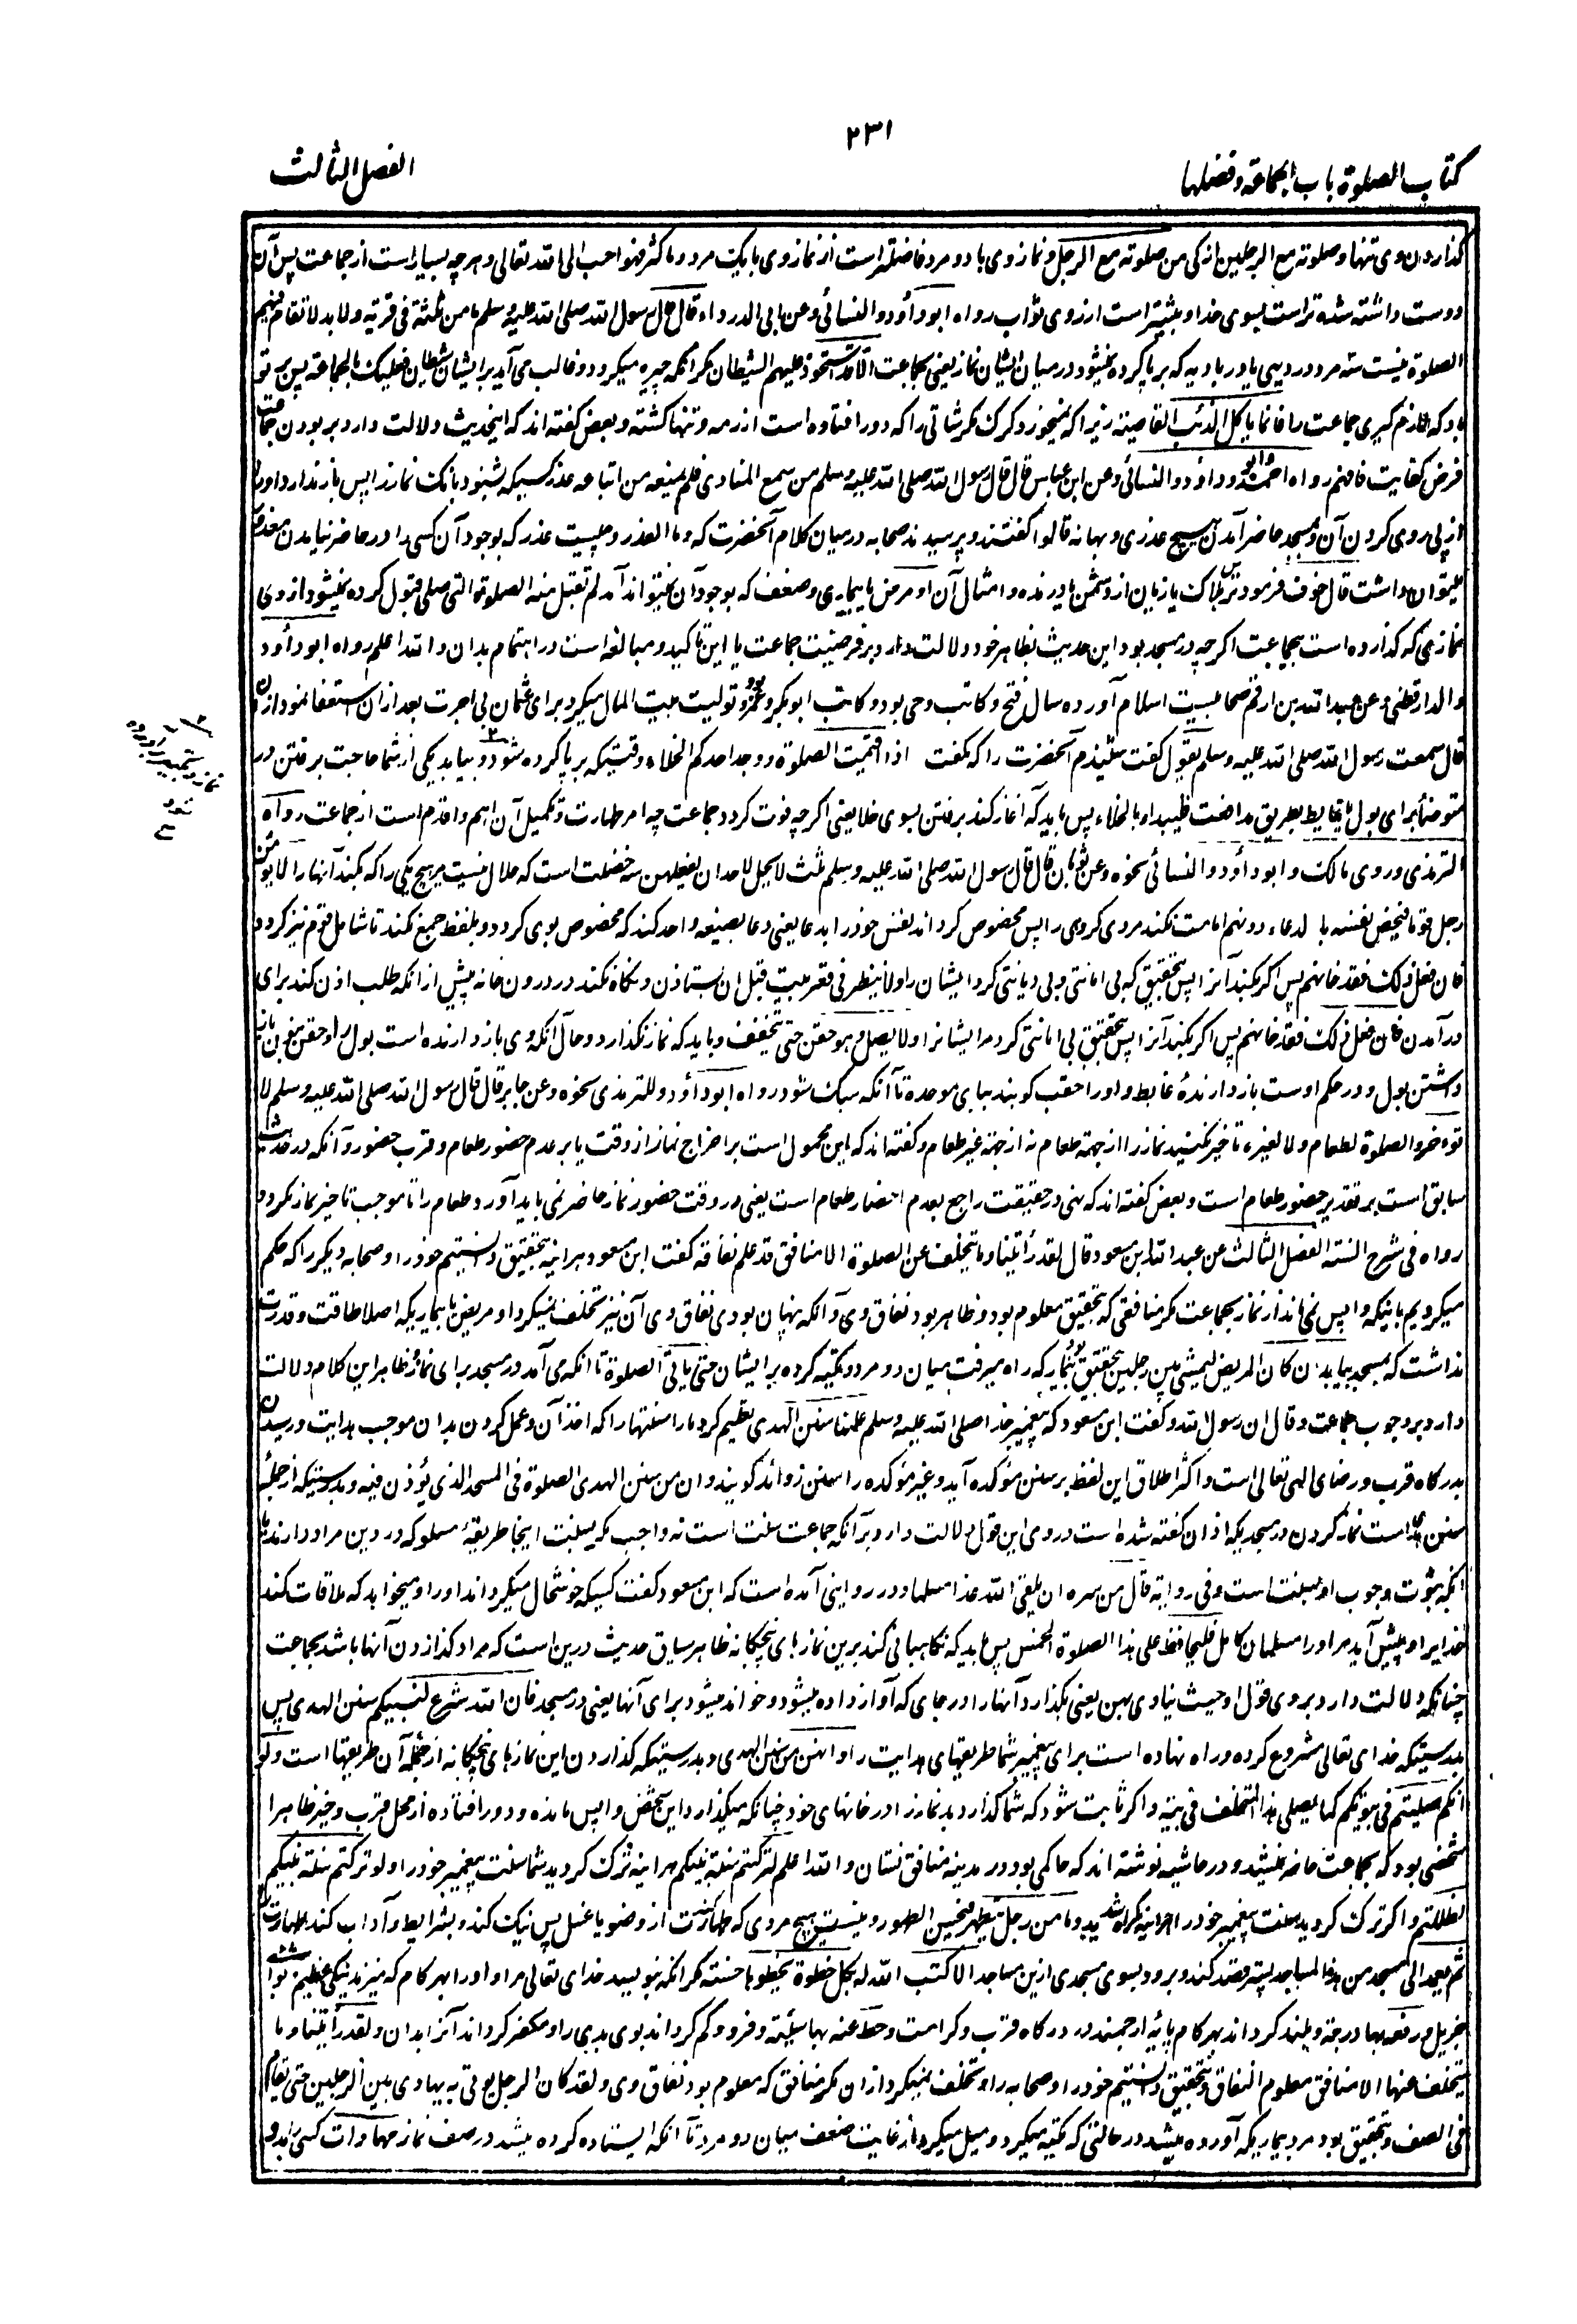 ۲۳۱
کتاب الصلوة باب الجماعة وفضلها
الفصل الثالث
گذاردن وی تنها وصلوته مع الرجلین ازکی من صلوته مع الرجل ونماز وی با دو مرد فاضلتر است از نماز وی با یک مرد وما کثر فهو احب الی الله تعالی وهرچه بسیار است از جماعت پس آن
دوست داشته شده تر است بسوی خدا وبیشتر است از روی ثواب رواه ابوداؤد والنسائی وعن ابی الدرداء قال قال رسول الله صلی الله علیه وسلم ما من ثلثة فی قریة ولا بدو لا تقام فیهم
الصلوة نیست سه مرد در دیهی یا در بادیه که برپا کرده نمیشود در میان ایشان نماز یعنی بجماعت الا قد استحوذ علیهم الشیطان مگر آنکه چیره میگردد وغالب می آید بر ایشان شیطان فعلیک بالجماعة پس بر تو
باد که لازم گیری جماعت را فانما یاکل الذئب القاصیة زیرا که نمیخورد گرگ مگر شاتی را که دور افتاده است از رمه وتنها گشته وبعض گفته اند که این حدیث دلالت دارد بر بودن جماعت
فرض کفایت فافهم رواه احمد وابو داؤد والنسائی وعن ابن عباس قال قال رسول الله صلی الله علیه وسلم من سمع المنادی فلم یمنعه من اتباعه عذر کسیکه شنود بانک نماز را پس باز ندارد او را
از پی روی کردن آن وبمسجد حاضر آمدن هیچ عذری وبهانه قالوا گفتند وپرسیدند صحابه در میان کلام آنحضرت که وما العذر وچیست عذر که بوجود آن کسی را در حاضر نیامدن معذور
میتوان داشت قال خوف فرمود ترس هلاک یا زیان از دشمن یا درنده وامثال آن او مرض یا بیماری وضعف که بوجود آن نتواند آمد لم تقبل منه الصلوة التی صلی قبول کرده نمیشود از وی
نمازی که گذارده است بجماعت اگرچه در مسجد بود این حدیث بظاهر خود دلالت دارد بر فرضیت جماعت یا این تاکید ومبالغه است در اهتمام بدان والله اعلم رواه ابوداؤد
والدارقطنی وعن عبدالله بن ارقم صحابیست اسلام آورده سال فتح وکاتب وحی بود وکاتب ابوبکر وعمر بود وتولیت بیت المال میکرد برای عثمان بی اجرت بعد ازان استعفا نمود ازان
قال سمعت رسول الله صلی الله علیه وسلم یقول گفت شنیدم آنحضرت را که گفت اذا اقیمت الصلوة ووجد احدکم الخلاء وقتیکه برپا کرده شود وبیابد یکی از شما حاجت برفتن در
متوضا برای بول یا غایط بطریق مدافعت فلیبدا بالخلاء پس باید که آغاز کند برفتن بسوی خلا یعنی اگرچه فوت گردد جماعت چه امر طهارت وتکمیل آن اهم واقدم است از جماعت رواه
الترمذی وروی مالک وابوداؤد والنسائی نحوه وعن ثوبان قال قال رسول الله صلی الله علیه وسلم ثلث لا یحل لاحد ان یفعلهن سه خصلت است که حلال نیست مر هیچ یکی را که بکند آنها را لا یؤمن
رجل قوما فیخص نفسه بالدعاء دونهم امامت نکند مردی گروهی را پس مخصوص گرداند نفس خود را بدعا یعنی دعا بصیغه واحد کند که مخصوص بوی گردد وبلفظ جمع نکند تا شامل قوم نیز گردد
فان فعل ذلک فقد خانهم پس اگر بکند آنرا پس بتحقیق که بی امانتی وبی دیانتی کرد ایشان را ولا ینظر فی قعر بیت قبل ان یستاذن ونگاه نکند در درون خانه پیش از آنکه طلب اذن کند برای
درآمدن فان فعل ذلک فقد خانهم پس اگر بکند آنرا پس بتحقیق بی امانتی کرد مر ایشانرا ولا یصل وهو حقن حتی یتخفف وباید که نماز نگذارد وحال آنکه وی باز دارنده است بول را وحقن بفتح باز
داشتن بول ودر حکم اوست باز دارندهٔ غایط واو را حقب گویند ببای موحده تا آنکه سبک شود رواه ابوداؤد وللترمذی نحوه وعن جابر قال قال رسول الله صلی الله علیه وسلم لا
تؤخروا الصلوة لطعام ولا لغیره تاخیر نکنید نماز را از جهة طعام نه از جهة غیر طعام وگفته اند که این محمول است بر اخراج نماز از وقت یا بر عدم حضور طعام وقرب حضور وآنکه در حدیث
سابق است بر تقدیر حضور طعام است وبعض گفته اند که نهی در حقیقت راجع بعدم احضار طعام است یعنی در وقت حضور نماز حاضر نمی باید آورد طعام را تا موجب تاخیر نماز نگردد
رواه فی شرح السنة الفصل الثالث عن عبدالله بن مسعود قال لقد رأیتنا وما یتخلف عن الصلوة الا منافق قد علم نفاقه گفت ابن مسعود هر آینه بتحقیق دانستیم خود را وصحابه دیگر را که حکم
میکردیم باینکه واپس نمی ماند از نماز بجماعت مگر منافقی که بتحقیق معلوم بود وظاهر بود نفاق وی وآنکه پنهان بودی نفاق وی آن نیز تخلف نمیکرد او مریض یا بیماریکه اصلا طاقت وقدرت
نداشت که بمسجد بیاید ان کان المریض لیمشی بین رجلین بتحقیق بود بیمار که راه میرفت میان دو مرد وتکیه کرده بر ایشان حتی یاتی الصلوة تا آنکه می آمد در مسجد برای نماز وظاهر این کلام دلالت
دارد بر وجوب جماعت وقال ان رسول الله وگفت ابن مسعود که پیغمبر خدا صلی الله علیه وسلم علمنا سنن الهدی تعلیم کرد ما را سنتها را که اخذ آن وعمل کردن بدان موجب هدایت ورسیدن
بدرگاه قرب ورضای الهی تعالی است واکثر اطلاق این لفظ بر سنن مؤکده آید وغیر مؤکده را سنن زوائد گویند وان من سنن الهدی الصلوة فی المسجد الذی یؤذن فیه وبدرستیکه از جملهٔ
سنن هدی است نماز کردن در مسجدیکه اذان گفته شده است در وی این قول دلالت دارد بر آنکه جماعت سنت است نه واجب مگر بسنت اینجا طریقهٔ مسلوکه در دین مراد دارند یا
آنکه ثبوت وجوب او بسنت است وفی روایة قال من سره ان یلقی الله غدا مسلما ودر روایتی آمده است که ابن مسعود گفت کسیکه خوشحال میگرداند او را ومیخواهد که ملاقات کند
خدایرا وپیش آید مر او را مسلمان کامل فلیحافظ علی هذه الصلوة الخمس پس باید که نگاهبانی کند برین نمازهای پنجگانه ظاهر سیاق حدیث درین است که مراد گذاردن آنها باشد بجماعت
چنانکه دلالت دارد بروی قول او حیث ینادی بهن یعنی بگذارد آنها را در جای که آواز داده میشود وخوانده میشود برای آنها یعنی در مسجد فان الله شرع لنبیکم سنن الهدی پس
بدرستیکه خدای تعالی مشروع کرده وراه نهاده است برای پیغمبر شما طریقهای هدایت را وانهن من سنن الهدی وبدرستیکه گذاردن این نمازهای پنجگانه از جملهٔ آن طریقها است ولو
انکم صلیتم فی بیوتکم کما یصلی هذا المتخلف فی بیته واگر ثابت شود که شما گذاردید نماز را در خانهای خود چنانکه میگذارد این شخص واپس مانده ودور افتاده از محل قرب وخیر ظاهرا
شخصی بود که بجماعت حاضر نمیشد ودر حاشیه نوشته اند که حاکمی بود در مدینه منافق نشان والله اعلم لترکتم سنة نبیکم هر آینه ترک کردید شما سنت پیغمبر خود را ولو ترکتم سنة نبیکم
لضللتم واگر ترک کردید سنت پیغمبر خود را هر آینه گمراه شدید وما من رجل یتطهر فیحسن الطهور ونیست هیچ مردی که طهارت کند از وضو یا غسل پس نیک کند وبشرایط وآداب کند طهارت را
ثم یعمد الی مسجد من هذه المساجد پستر قصد کند وبرود بسوی مسجدی ازین مساجد الا کتب الله له بکل خطوة یخطوها حسنة مگر آنکه بنویسد خدای تعالی مر او را بهر گام که میزند نیکی عظیم ثواب
جزیل ورفعه بها درجة وبلند گرداند بهر گام پایه ارجمند در درگاه قرب وکرامت وحط عنه بها سیئة وفرود وکم گرداند بوی بدی را ومکفر گرداند آنرا بدان ولقد رأیتنا وما
یتخلف عنها الا منافق معلوم النفاق وبتحقیق دانستیم خود را وصحابه را وتخلف نمیکرد ازان مگر منافق که معلوم بود نفاق وی ولقد کان الرجل یؤتی به یهادی بین الرجلین حتی یقام
فی الصف وبتحقیق بود مرد بیماریکه آورده میشد در حالتی که تکیه میکرد ومیل میکرد از غایت ضعف میان دو مرد تا آنکه ایستاده کرده میشد در صف نماز